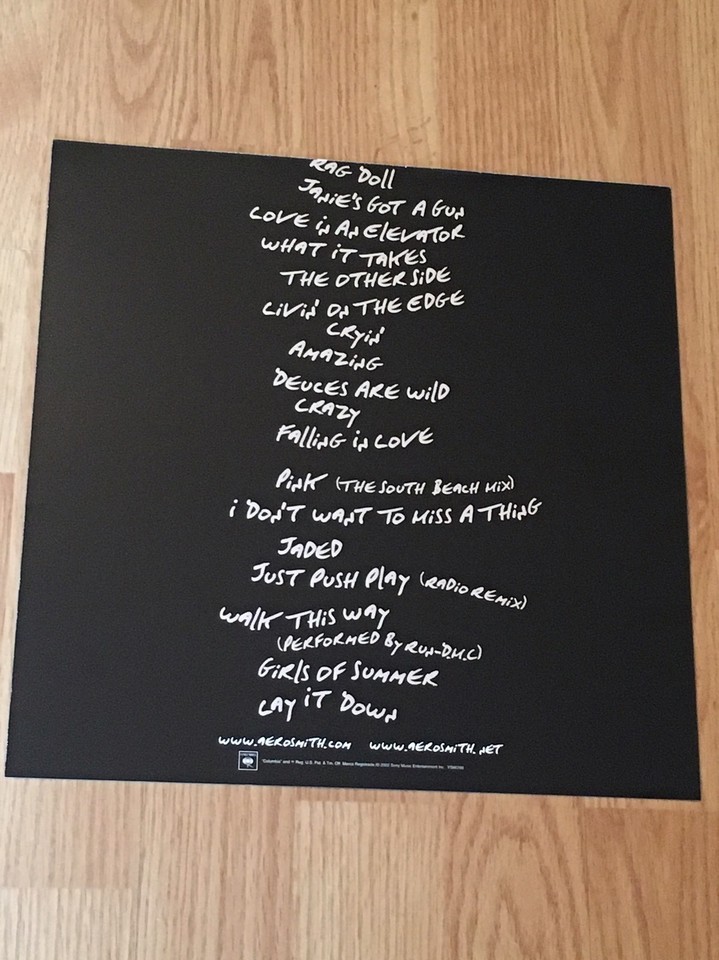 RAG DOLL
JANIE'S GOT A GUN
LOVE iN AN ELEVATOR
WHAT iT TAKES
THE OTHER SiDE
LiViN' ON THE EDGE
CRYiN'
AMAZiNG
DEUCES ARE WiLD
CRAZY
FALLiNG iN LOVE
PiNK (THE SOUTH BEACH MiX)
i DON'T WANT TO MiSS A THiNG
JADED
JUST PUSH PLAY (RADiO REMiX)
WALK THiS WAY
(PERFORMED BY RUN-D.M.C)
GiRLS OF SUMMER
LAY iT DOWN
WWW.AEROSMiTH.COM WWW.AEROSMiTH.NET
"Columbia" and Reg. U.S. Pat. & Tm. Off. Marca Registrada./© 2002 Sony Music Entertainment Inc.